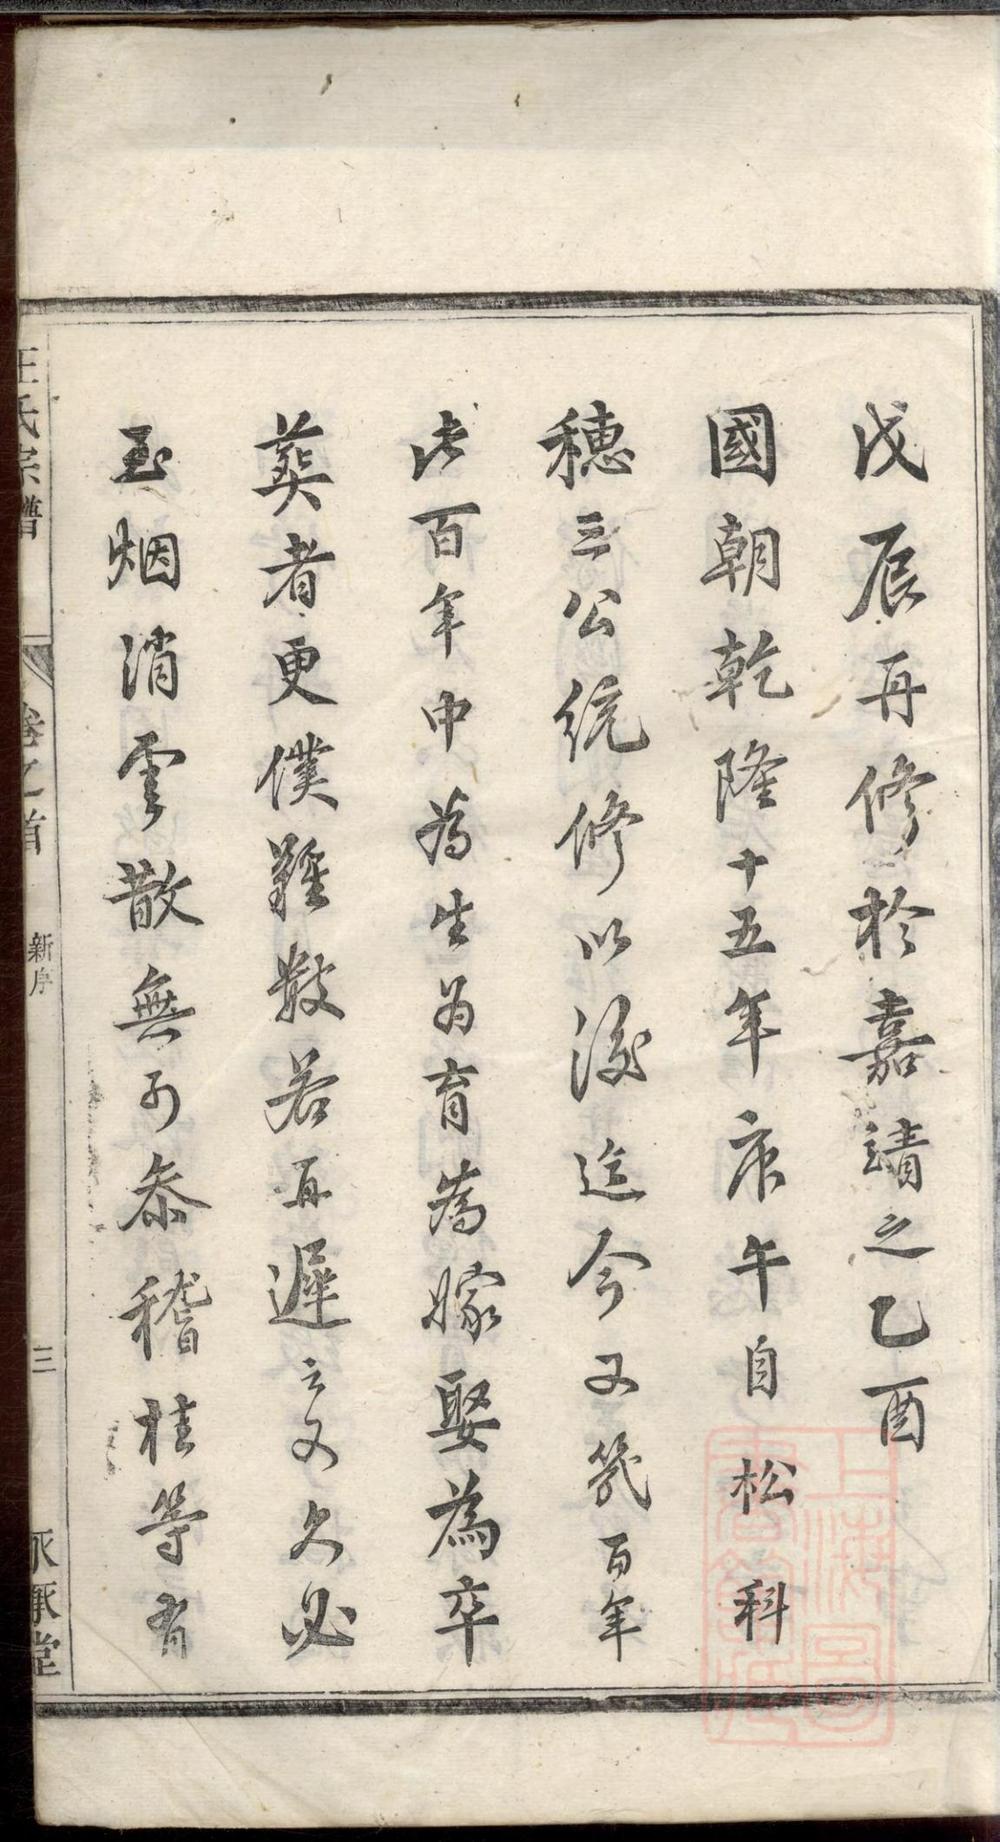 戊辰再修於嘉靖之乙酉
國朝乾隆十五年庚午自松科
穂三公統修以後迄今又幾百年
此百年中為生為育為嫁娶為卒
葬者更僕難數若再遲之又久必
至烟消雲散無可叅稽桂等有
王氏宗譜
卷之首
新序
三
承堂
上海圖書館藏